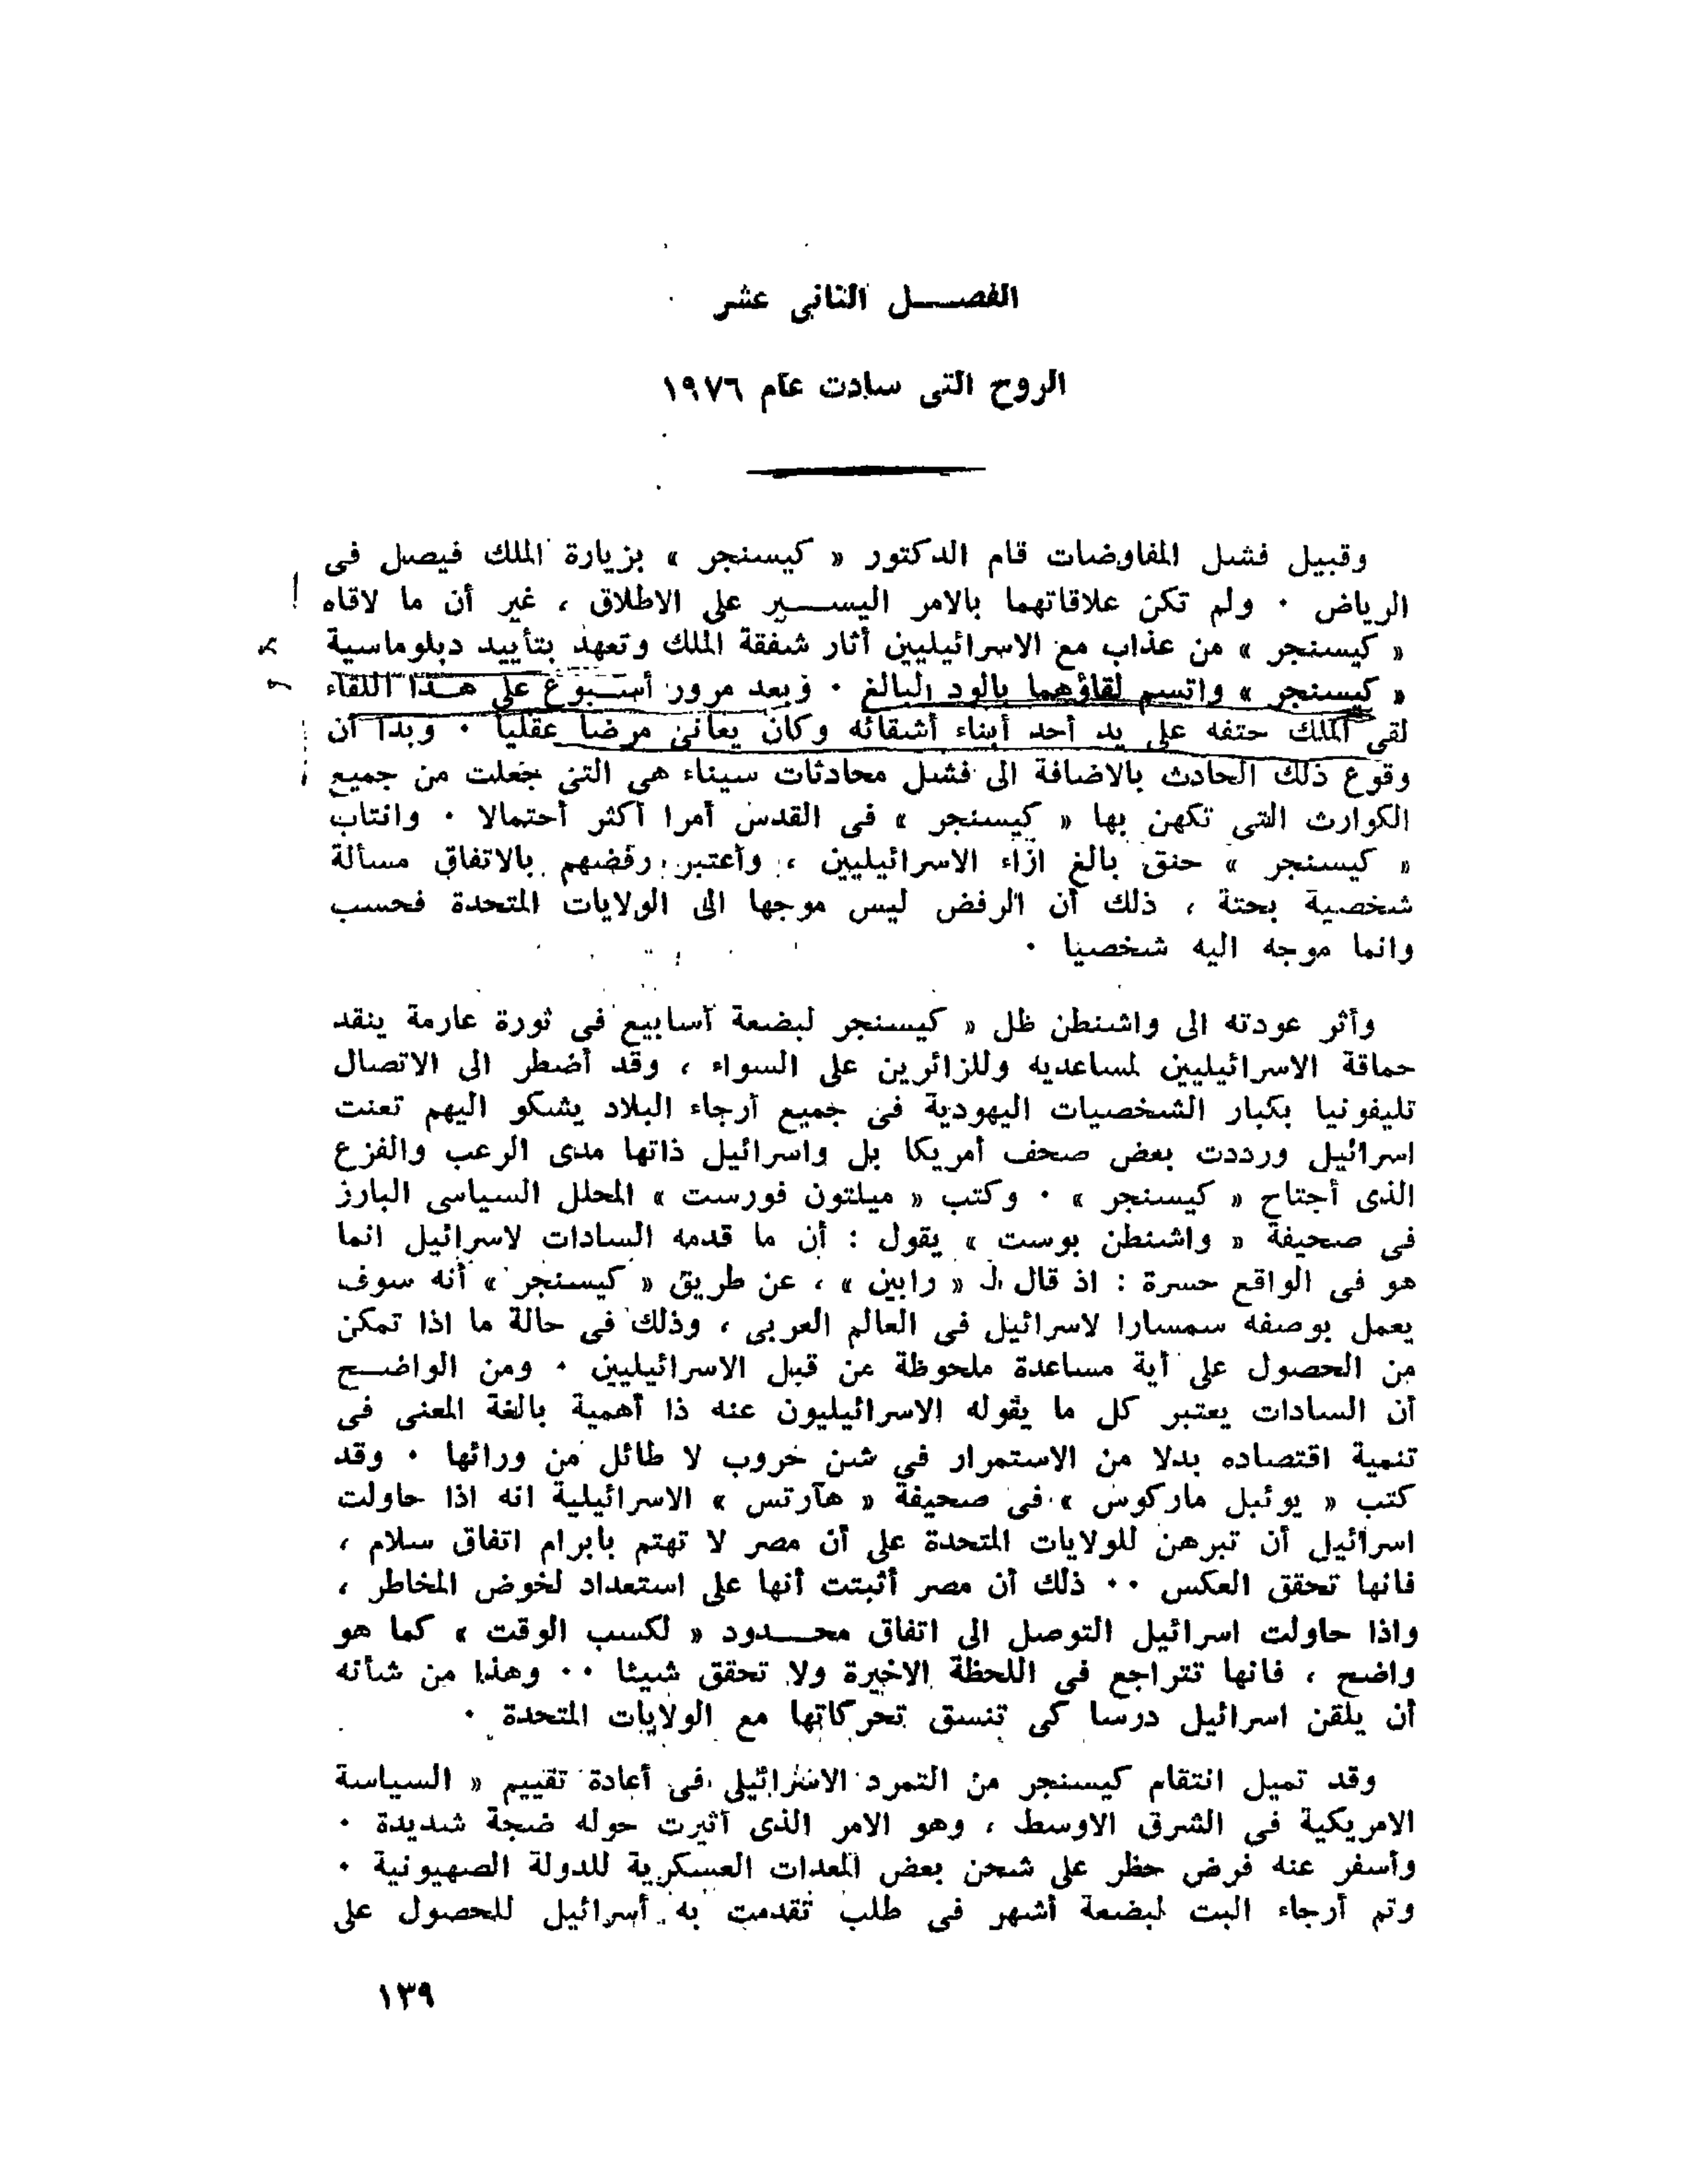 الفصـــل الثانى عشر
الروح التى سادت عام ١٩٧٦
وقبيل فشل المفاوضات قام الدكتور « كيسنجر » بزيارة الملك فيصل فى
الرياض ٠ ولم تكن علاقاتهما بالامر اليســـير على الاطلاق ، غير أن ما لاقاه
« كيسنجر » من عذاب مع الاسرائيليين أثار شفقة الملك وتعهد بتأييد دبلوماسية
« كيسنجر » واتسم لقاؤهما بالود البالغ ٠ وبعد مرور أســبوع على هــذا اللقاء
لقى الملك حتفه على يد أحد أبناء أشقائه وكان يعانى مرضا عقليا ٠ وبدا أن
وقوع ذلك الحادث بالاضافة الى فشل محادثات سيناء هى التى جعلت من جميع
الكوارث التى تكهن بها « كيسنجر » فى القدس أمرا أكثر أحتمالا ٠ وانتاب
« كيسنجر » حنق بالغ ازاء الاسرائيليين ، وأعتبر رفضهم بالاتفاق مسألة
شخصية بحتة ، ذلك أن الرفض ليس موجها الى الولايات المتحدة فحسب
وانما موجه اليه شخصيا ٠
وأثر عودته الى واشنطن ظل « كيسنجر لبضعة أسابيع فى ثورة عارمة ينقد
حماقة الاسرائيليين لمساعديه وللزائرين على السواء ، وقد أضطر الى الاتصال
تليفونيا بكبار الشخصيات اليهودية فى جميع أرجاء البلاد يشكو اليهم تعنت
اسرائيل ورددت بعض صحف أمريكا بل واسرائيل ذاتها مدى الرعب والفزع
الذى أجتاح « كيسنجر » ٠ وكتب « ميلتون فورست » المحلل السياسى البارز
فى صحيفة « واشنطن بوست » يقول : أن ما قدمه السادات لاسرائيل انما
هو فى الواقع حسرة : اذ قال لـ « رابين » ، عن طريق « كيسنجر » أنه سوف
يعمل بوصفه سمسارا لاسرائيل فى العالم العربى ، وذلك فى حالة ما اذا تمكن
من الحصول على أية مساعدة ملحوظة عن قبل الاسرائيليين ٠ ومن الواضــح
أن السادات يعتبر كل ما يقوله الاسرائيليون عنه ذا أهمية بالغة المعنى فى
تنمية اقتصاده بدلا من الاستمرار فى شن حروب لا طائل من ورائها ٠ وقد
كتب « يوئيل ماركوس » فى صحيفة « هآرتس » الاسرائيلية انه اذا حاولت
اسرائيل أن تبرهن للولايات المتحدة على أن مصر لا تهتم بابرام اتفاق سلام ،
فانها تحقق العكس ٠٠ ذلك أن مصر أثبتت أنها على استعداد لخوض المخاطر ،
واذا حاولت اسرائيل التوصل الى اتفاق محـــدود « لكسب الوقت » كما هو
واضح ، فانها تتراجع فى اللحظة الاخيرة ولا تحقق شيئا ٠٠ وهذا من شأنه
أن يلقن اسرائيل درسا كى تنسق تحركاتها مع الولايات المتحدة ٠
وقد تميل انتقام كيسنجر من التمرد الاسرائيلى فى أعادة تقييم « السياسة
الامريكية فى الشرق الاوسط ، وهو الامر الذى أثيرت حوله ضجة شديدة ٠
وأسفر عنه فرض حظر على شحن بعض المعدات العسكرية للدولة الصهيونية ٠
وتم أرجاء البت لبضعة أشهر فى طلب تقدمت به أسرائيل للحصول على
١٣٩